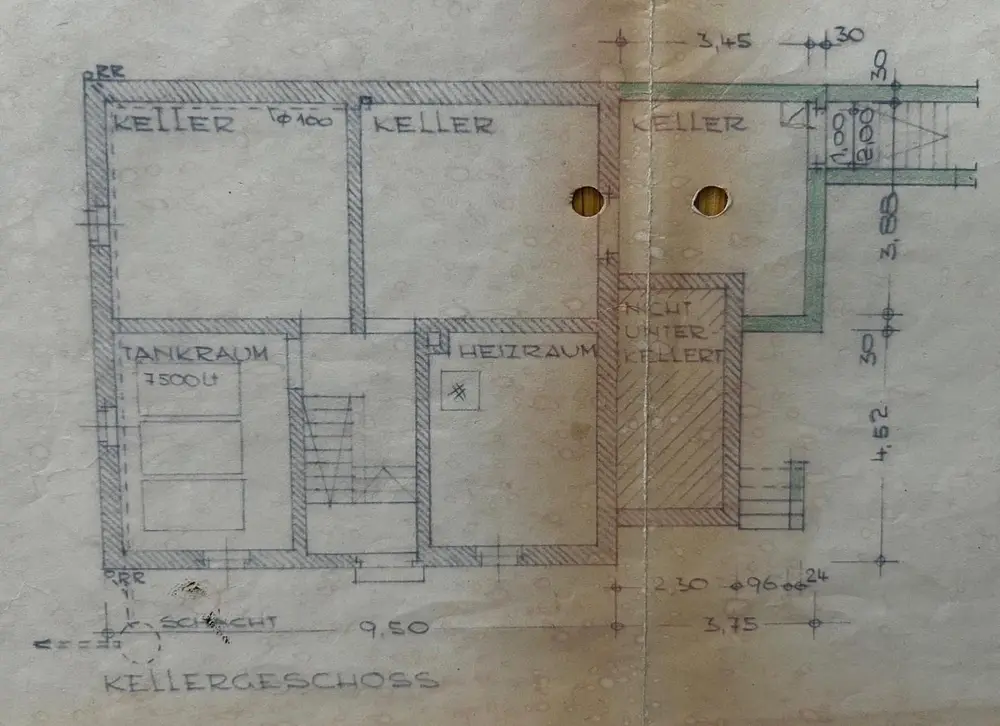 3,45
30
RR
30
KELLER
φ100
KELLER
KELLER
1,00
2,00
3,88
NICHT
UNTER
KELLERT
TANKRAUM
HEIZRAUM
7500 Lt
30
4,52
RR
2,30
96
24
SCHACHT
9,50
3,75
KELLERGESCHOSS